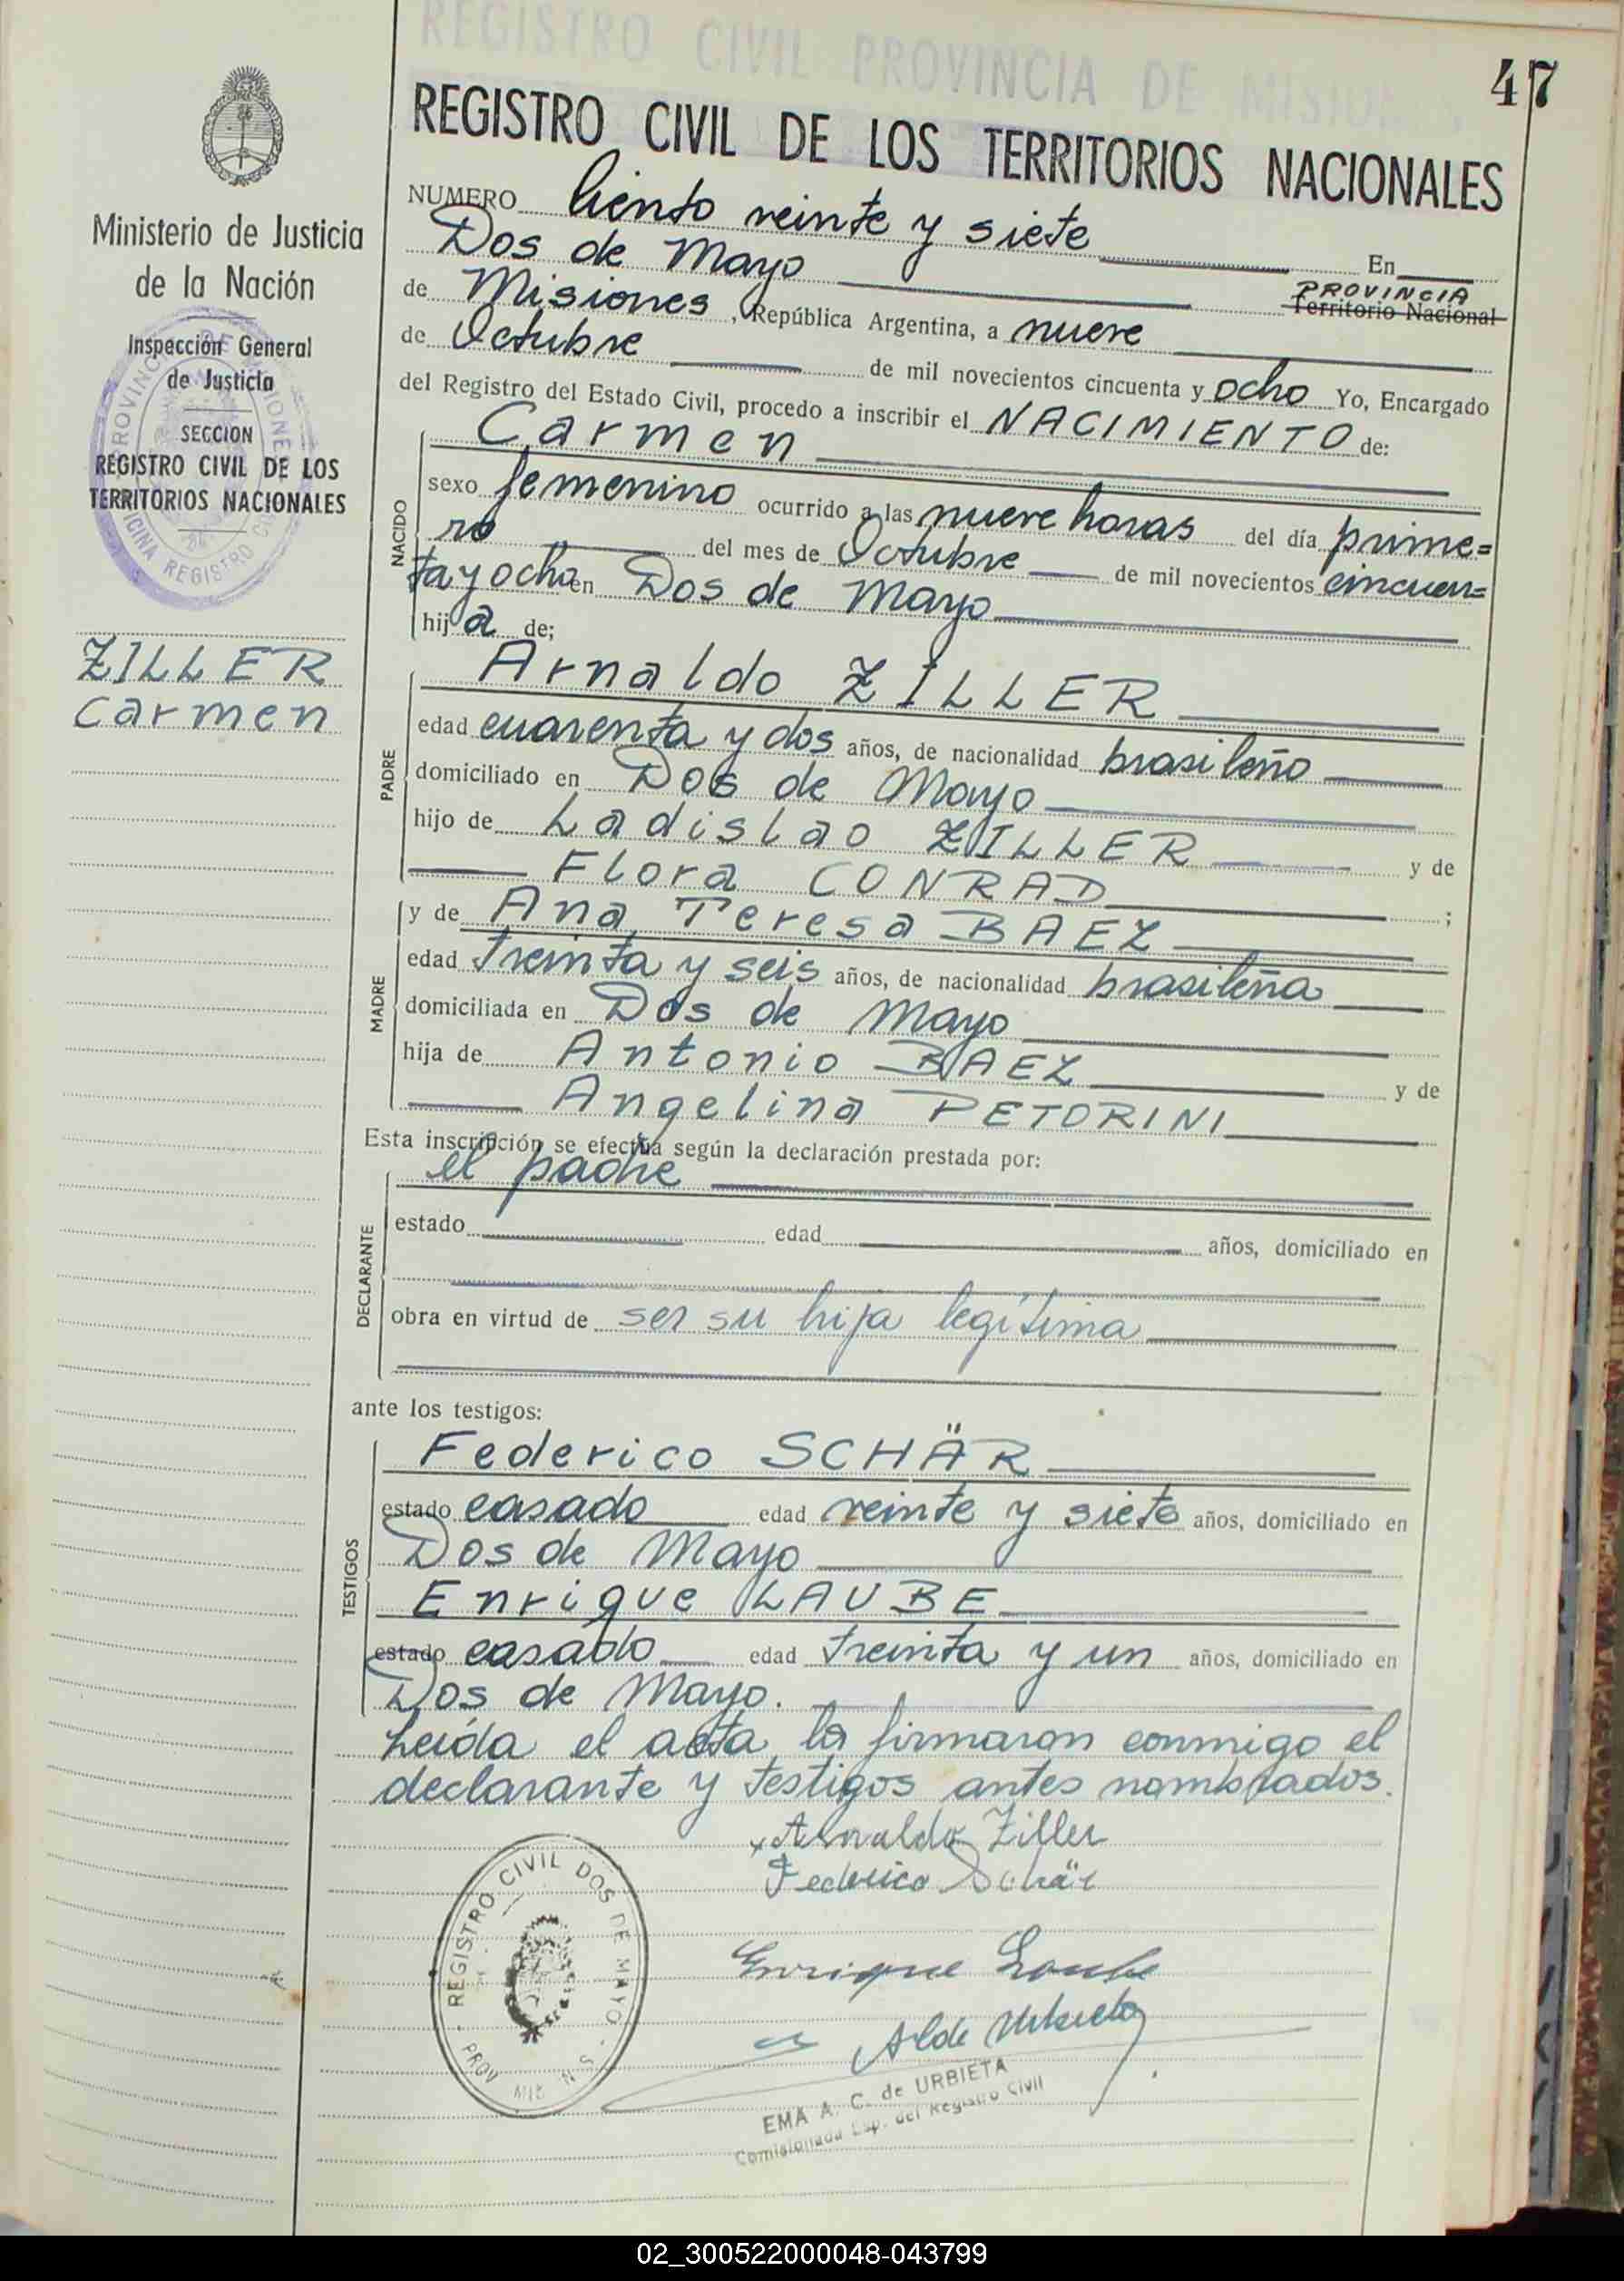 REGISTRO CIVIL PROVINCIA DE MISIONES
47
REGISTRO CIVIL DE LOS TERRITORIOS NACIONALES
Ministerio de Justicia
de la Nación
Inspección General
de Justicia
SECCION
REGISTRO CIVIL DE LOS
TERRITORIOS NACIONALES
ZILLER
Carmen
NUMERO Ciento veinte y siete En
Dos de Mayo PROVINCIA Territorio Nacional
de Misiones, República Argentina, a nueve
de Octubre de mil novecientos cincuenta y ocho Yo, Encargado
del Registro del Estado Civil, procedo a inscribir el NACIMIENTO de:
NACIDO
Carmen
sexo femenino ocurrido a las nueve horas del día prime=
ro del mes de Octubre de mil novecientos cincuen=
ta y ocho en Dos de Mayo
hija de;
PADRE
Arnaldo ZILLER
edad cuarenta y dos años, de nacionalidad brasileño
domiciliado en Dos de Mayo
hijo de Ladislao ZILLER y de
Flora CONRAD ;
MADRE
y de Ana Teresa BAEZ
edad treinta y seis años, de nacionalidad brasileña
domiciliada en Dos de Mayo
hija de Antonio BAEZ y de
Angelina PETORINI
Esta inscripción se efectúa según la declaración prestada por:
DECLARANTE
el padre
estado edad años, domiciliado en
obra en virtud de ser su hija legítima
ante los testigos:
TESTIGOS
Federico SCHÄR
estado casado edad veinte y siete años, domiciliado en
Dos de Mayo
Enrique LAUBE
estado casado edad treinta y un años, domiciliado en
Dos de Mayo.
Leída el acta la firmaron conmigo el
declarante y testigos antes nombrados.
x Arnaldo Ziller
Federico Schär
Enrique Laube
A de Urbieta
REGISTRO CIVIL DOS DE MAYO - PROV MIS
EMA A. C. de URBIETA
Comisionada Esp. del Registro Civil
02_300522000048-043799